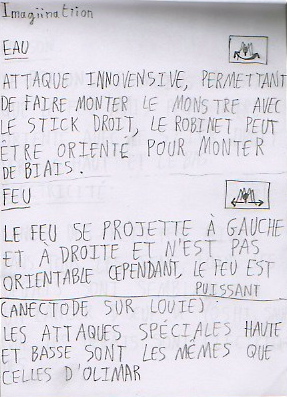 Imagiination
EAU
ATTAQUE INNOVENSIVE, PERMETTANT
DE FAIRE MONTER LE MONSTRE AVEC
LE STICK DROIT, LE ROBINET PEUT
ÊTRE ORIENTÉ POUR MONTER
DE BIAIS.
FEU
LE FEU SE PROJETTE À GAUCHE
ET A DROITE ET N'EST PAS
ORIENTABLE CEPENDANT, LE FEU EST
PUISSANT
(ANECTODE SUR LOUIE)
LES ATTAQUES SPÉCIALES HAUTE
ET BASSE SONT LES MÊMES QUE
CELLES D'OLIMAR